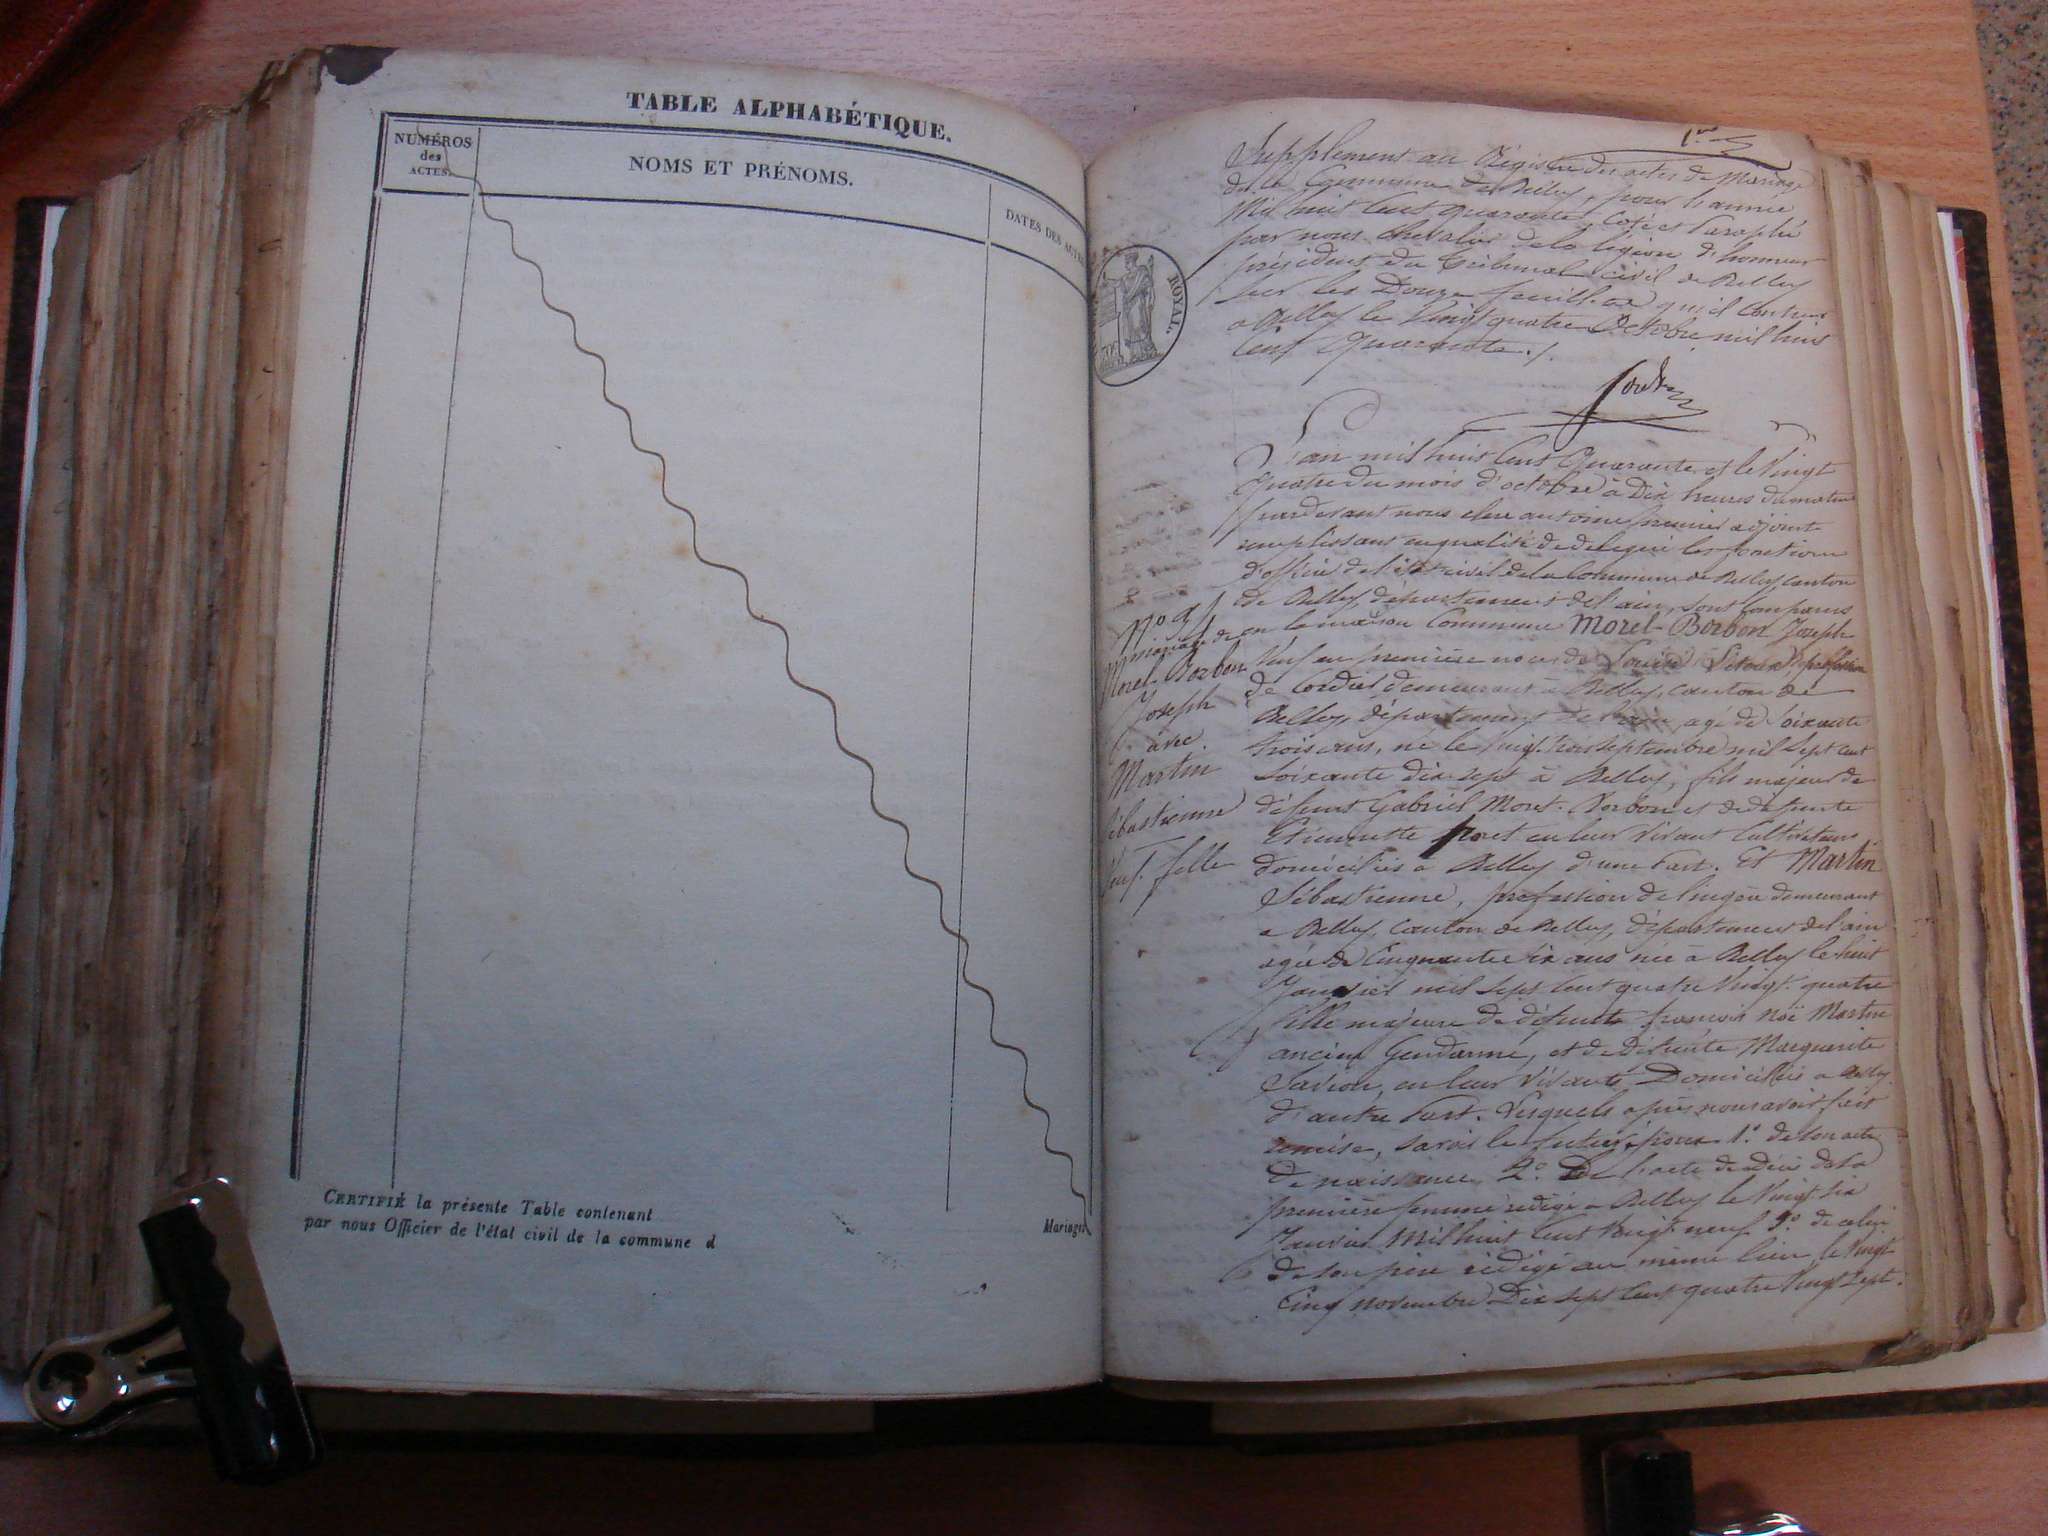 TABLE ALPHABÉTIQUE.
NUMÉROS
des
ACTES.
NOMS ET PRÉNOMS.
DATES DES ACTES
CERTIFIÉ la présente Table contenant
Mariages
par nous Officier de l'état civil de la commune d
1er
Supplement au Régistre des actes de Mariage
de la Commune de Belley, pour l'année
Mil huit cent quarante, coté et paraphé
par nous chevalier de la légion d'honneur
président du Tribunal civil de Belley
sur les Douze feuilles qu'il contient
a Belley le Vingt quatre Octobre mil huit
cent Quarante ./.
ROYAL.
L'an mil huit cent Quarante et le Vingt
Quatre du mois d'octobre à Dix heures du matin
pardevant nous antoine premier adjoint
remplissant en qualité de delegué les fonctions
d'officier de l'état civil de la Commune de Belley, canton
de Belley, département de l'ain, sont comparus
en la maison Commune Morel-Borbon Joseph
Veuf en première noces de Louise profession
de Cordier, demeurant à Belley, canton de
Belley, département de l'ain, agé de soixante
trois ans, né le Vingt trois septembre mil sept cent
soixante dix sept à Belley, fils majeur de
défunt Gabriel Morel-Borbon et de défunte
Etiennette en leur vivant Cultivateurs
domiciliés à Belley d'une Part. Et Martin
Sébastienne, profession de lingère demeurant
a Belley, Canton de Belley, département de l'ain
agée de Cinquante six ans née à Belley le huit
Janvier mil sept cent quatre Vingt quatre
fille majeure de défunt françois Noë Martin
ancien Gendarme, et de Défunte Marguerite
Savion, en leur vivant Domiciliés a Belley
d'autre Part. Lesquels après nous avoir fait
remise, savoir le futur époux 1.º de son acte
de naissance, 2.º De l'acte de décès de sa
première femme rédigé a Belley le Vingt six
Janvier Mil huit cent Vingt neuf 3.º de celui
de son père rédigé au même lieu, le Vingt
Cinq novembre Dix sept cent quatre Vingt sept.
Nº 9
mariage de
Morel-Borbon
Joseph
avec
Martin
Sébastienne
Veuf. fille